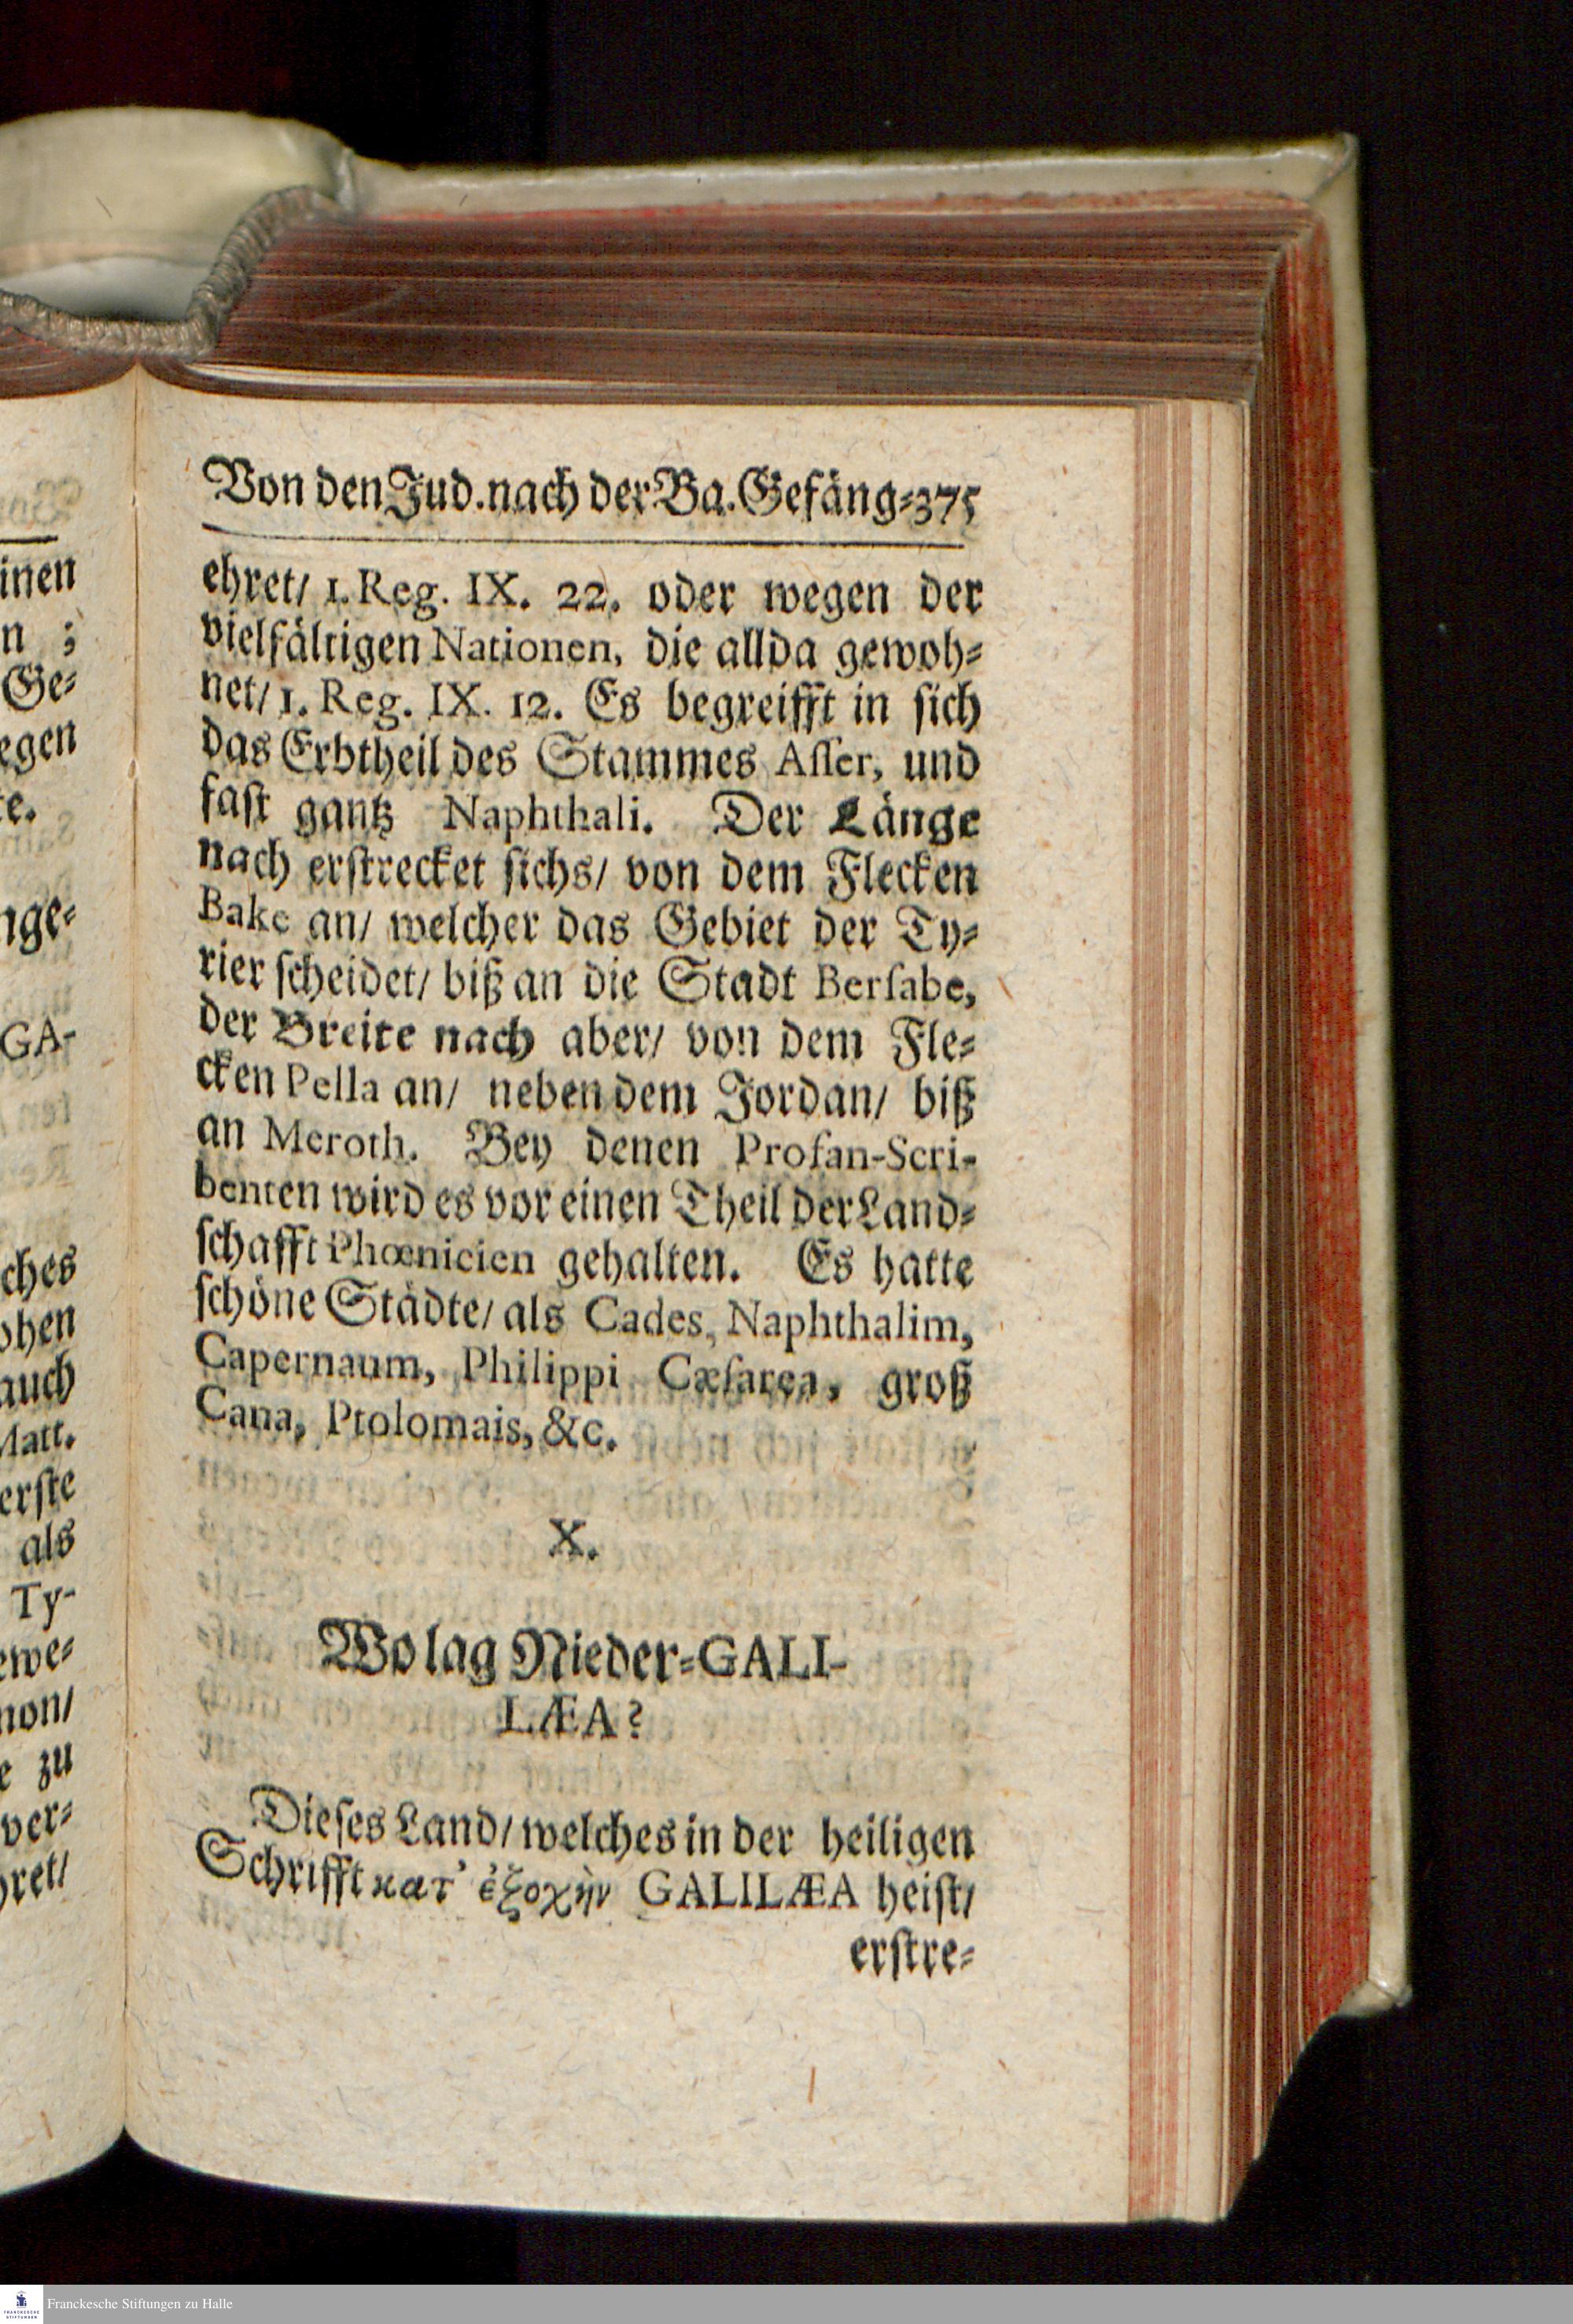 inen
n ;
Ge-
egen
te.
nge-
GA-
ches
ohen
auch
Matt.
erste
als
Ty-
ewe-
non/
e zu
ver-
hret/
Von den Jud. nach der Ba. Gefäng-375
ehret/ 1. Reg. IX. 22. oder wegen der
vielfältigen Nationen, die allda gewoh-
net/ 1. Reg. IX. 12. Es begreifft in sich
das Erbtheil des Stammes Asser, und
fast gantz Naphthali. Der Länge
nach erstrecket sichs/ von dem Flecken
Bake an/ welcher das Gebiet der Ty-
rier scheidet/ biß an die Stadt Bersabe,
der Breite nach aber/ von dem Fle-
cken Pella an/ neben dem Jordan/ biß
an Meroth. Bey denen Profan-Scri-
benten wird es vor einen Theil der Land-
schafft Phœnicien gehalten. Es hatte
schöne Städte/ als Cades, Naphthalim,
Capernaum, Philippi Cæsarea, groß
Cana, Ptolomais, &c.
X.
Wo lag Nieder-GALI-
LÆA?
Dieses Land/ welches in der heiligen
Schrifft κατ' ἐξοχὴν GALILÆA heist/
erstre-
FRANCKESCHE
STIFTUNGEN
Franckesche Stiftungen zu Halle